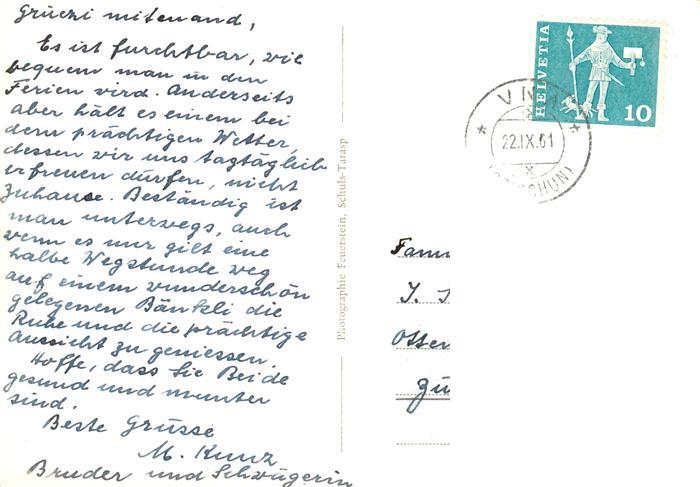 Grüezi mitenand,
Es ist furchtbar, wie
bequem man in den
Ferien wird. Anderseits
aber hält es einem bei
dem prächtigen Wetter,
dessen wir uns tagtäglich
erfreuen dürfen, nicht
Zuhause. Beständig ist
man unterwegs, auch
wenn es nur gilt eine
halbe Wegstunde weg
auf einem wunderschön
gelegenen Bänkli die
Ruhe und die prächtige
Aussicht zu geniessen.
Hoffe, dass Sie Beide
gesund und munter
sind.
Beste Grüsse
M. Kunz
Bruder und Schwägerin
Photographie Feuerstein, Schuls-Tarasp
HELVETIA
10
22.IX.61